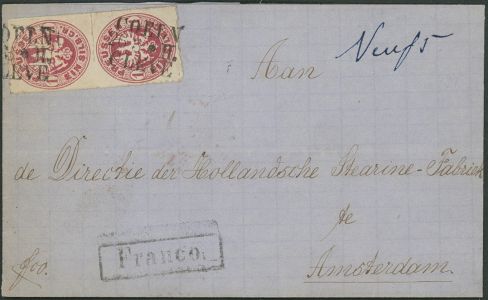 COELN
CLEVE
COELN
Aan
de Directie der Hollandsche Stearine-Fabriek
te
Amsterdam.
fco.
Franco.